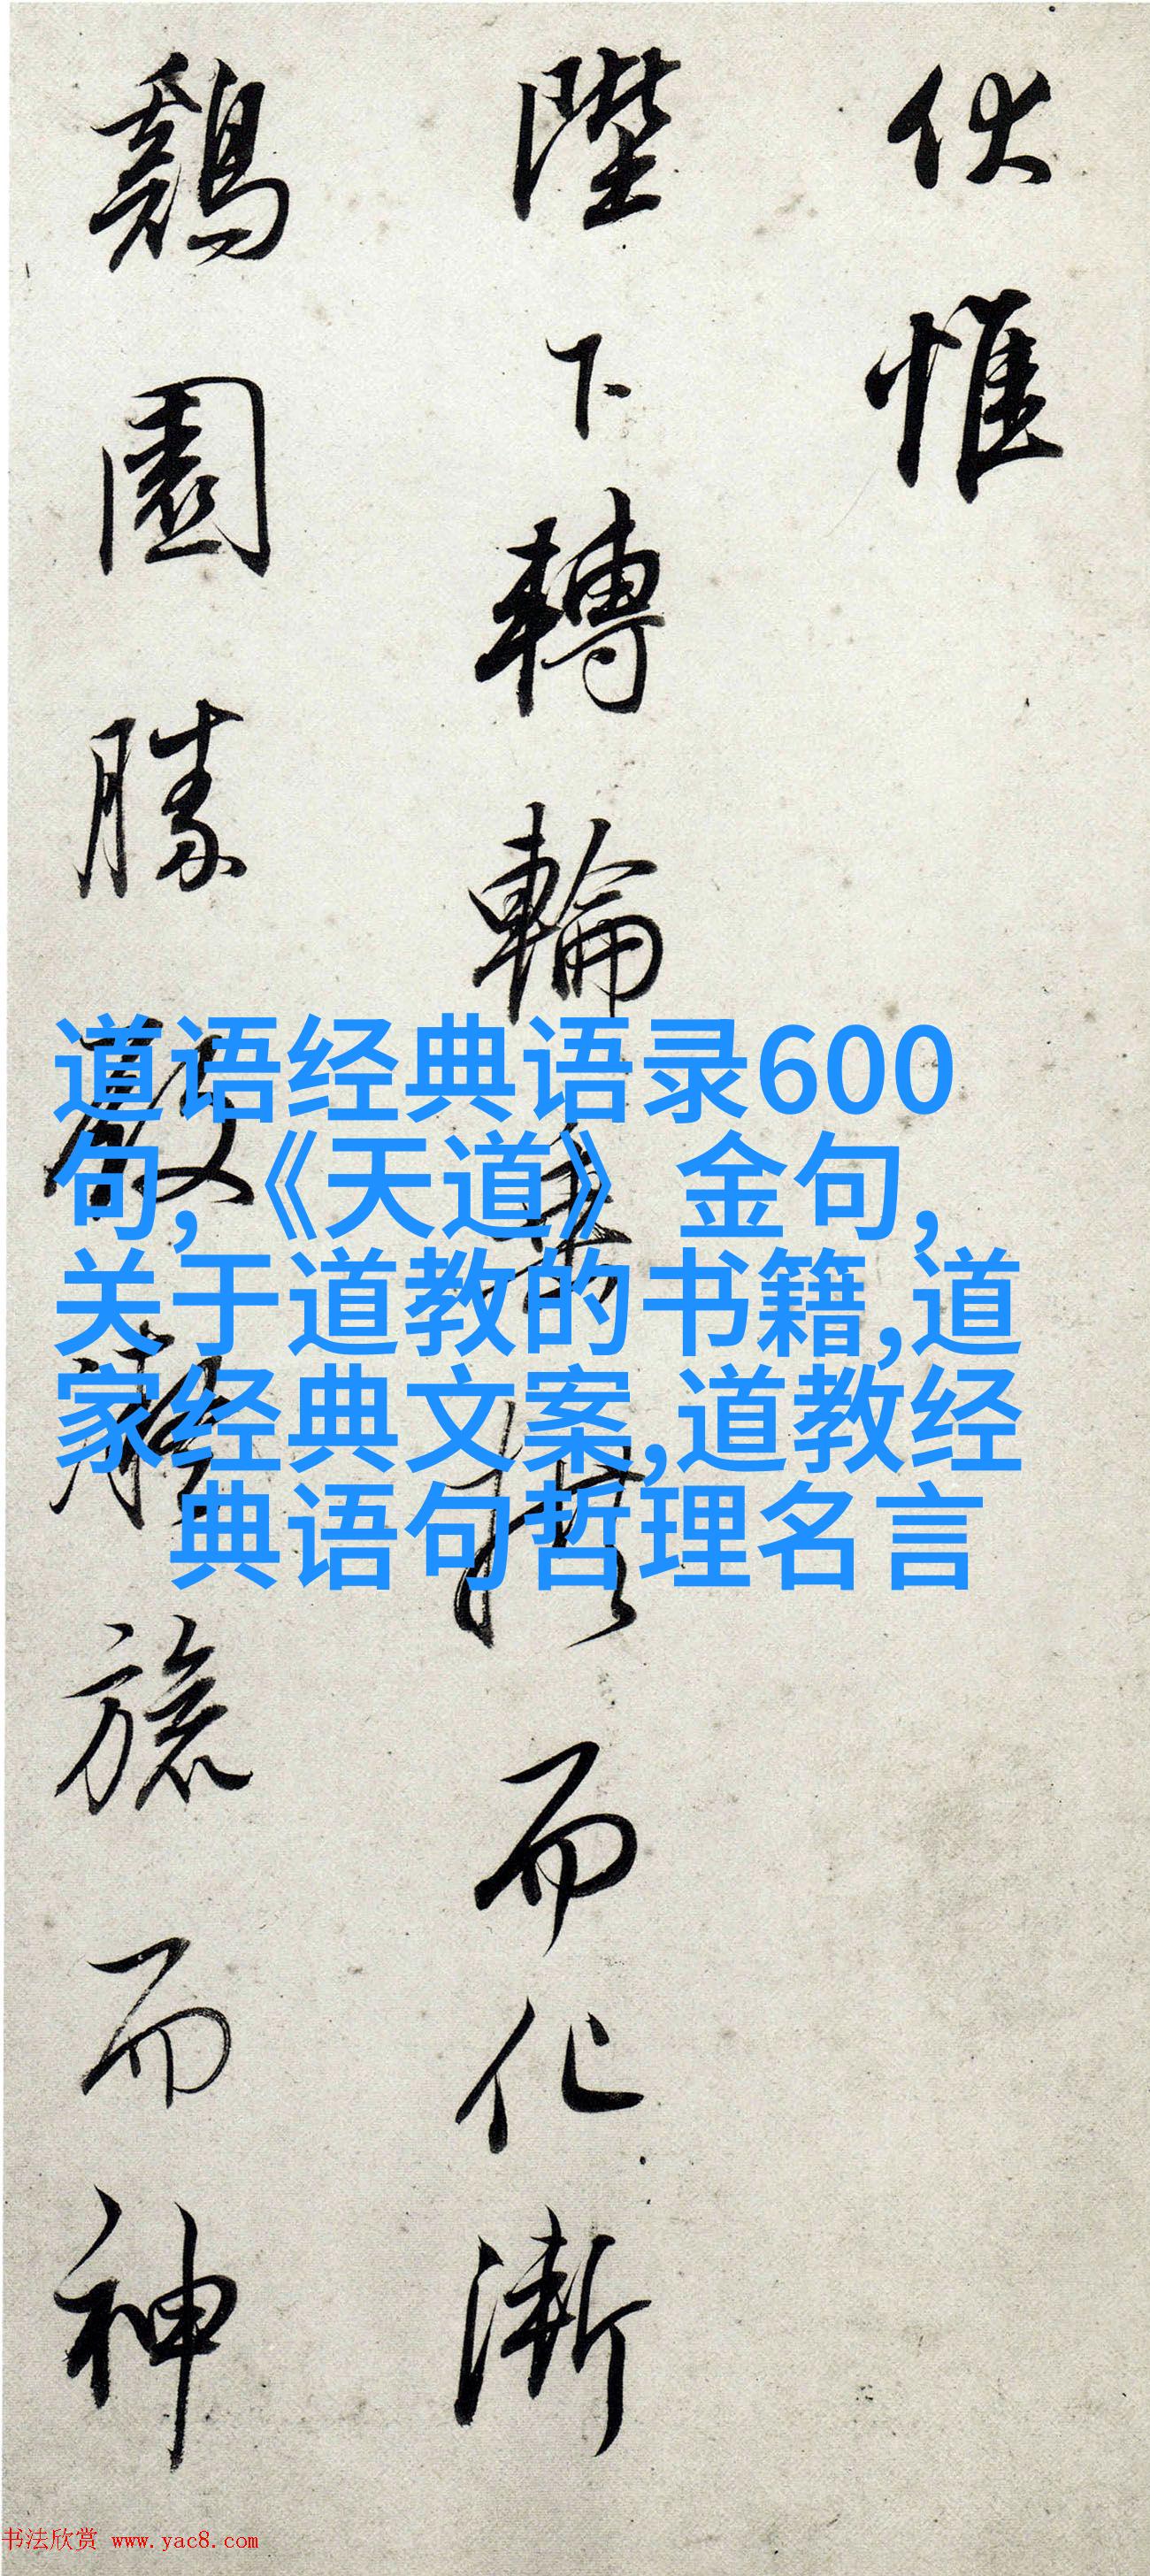 伏惟
陛下轉輪
而化漸
鷄園勝
旅而神
道语经典语录600
句,《天道》金句,
关于道教的书籍,道
家经典文案,道教经
典语句哲理名言
书法欣赏 www.yac8.com